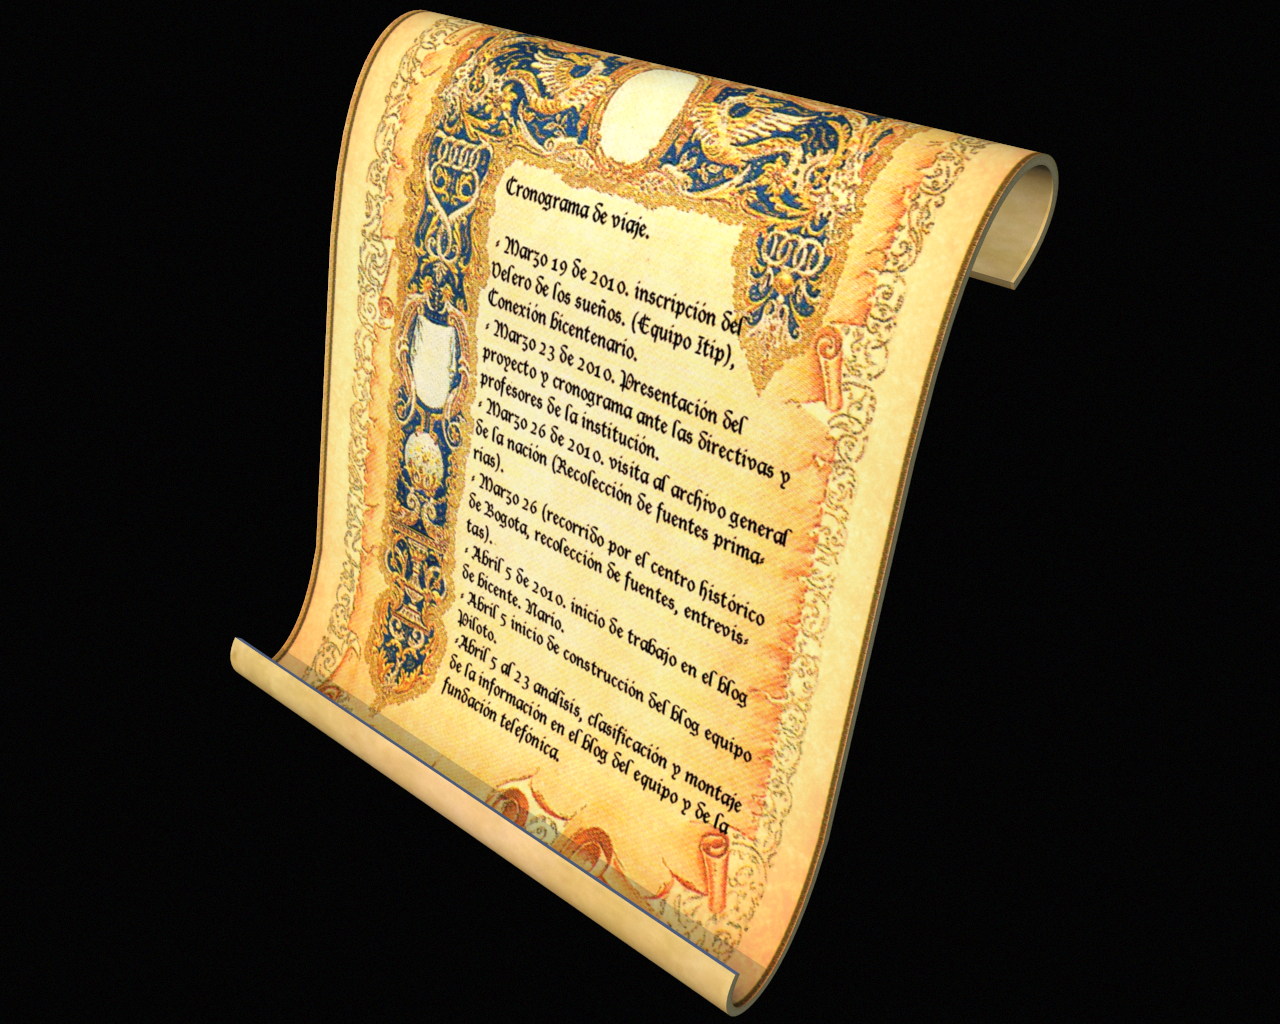 Cronograma de viaje.
- Marzo 19 de 2010. inscripción del
Velero de los sueños. (Equipo Itip),
Conexión bicentenario.
- Marzo 23 de 2010. Presentación del
proyecto y cronograma ante las directivas y
profesores de la institución.
- Marzo 26 de 2010. visita al archivo general
de la nación (Recolección de fuentes prima-
rias).
- Marzo 26 (recorrido por el centro histórico
de Bogota, recolección de fuentes, entrevis-
tas).
- Abril 5 de 2010. inicio de trabajo en el blog
de bicente. Nario.
- Abril 5 inicio de construcción del blog equipo
Piloto.
-Abril 5 al 23 análisis, clasificación y montaje
de la información en el blog del equipo y de la
fundación telefónica.